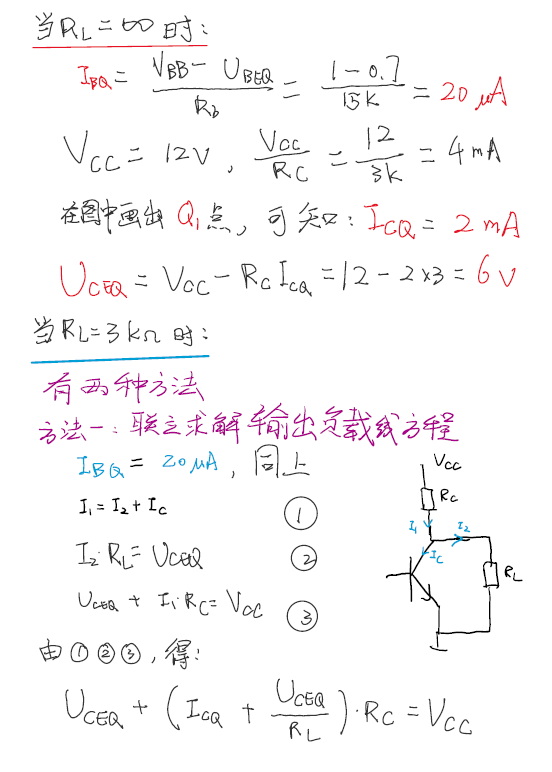 当R_L=∞时：
I_BQ = (V_BB - U_BEQ)/R_b = (1-0.7)/15K = 20 μA
V_CC = 12V, V_CC/R_C = 12/3K = 4mA
在图中画出Q₁点，可知：I_CQ = 2mA
U_CEQ = V_CC - R_C I_CQ = 12 - 2×3 = 6V
当R_L=3kΩ时：
有两种方法
方法一：联立求解输出负载线方程
I_BQ = 20μA, 同上
I₁ = I₂ + I_C ①
I₂·R_L = U_CEQ ②
U_CEQ + I₁·R_C = V_CC ③
V_CC
R_C
I₁
I₂
I_C
R_L
由①②③,得:
U_CEQ + (I_CQ + U_CEQ/R_L)·R_C = V_CC